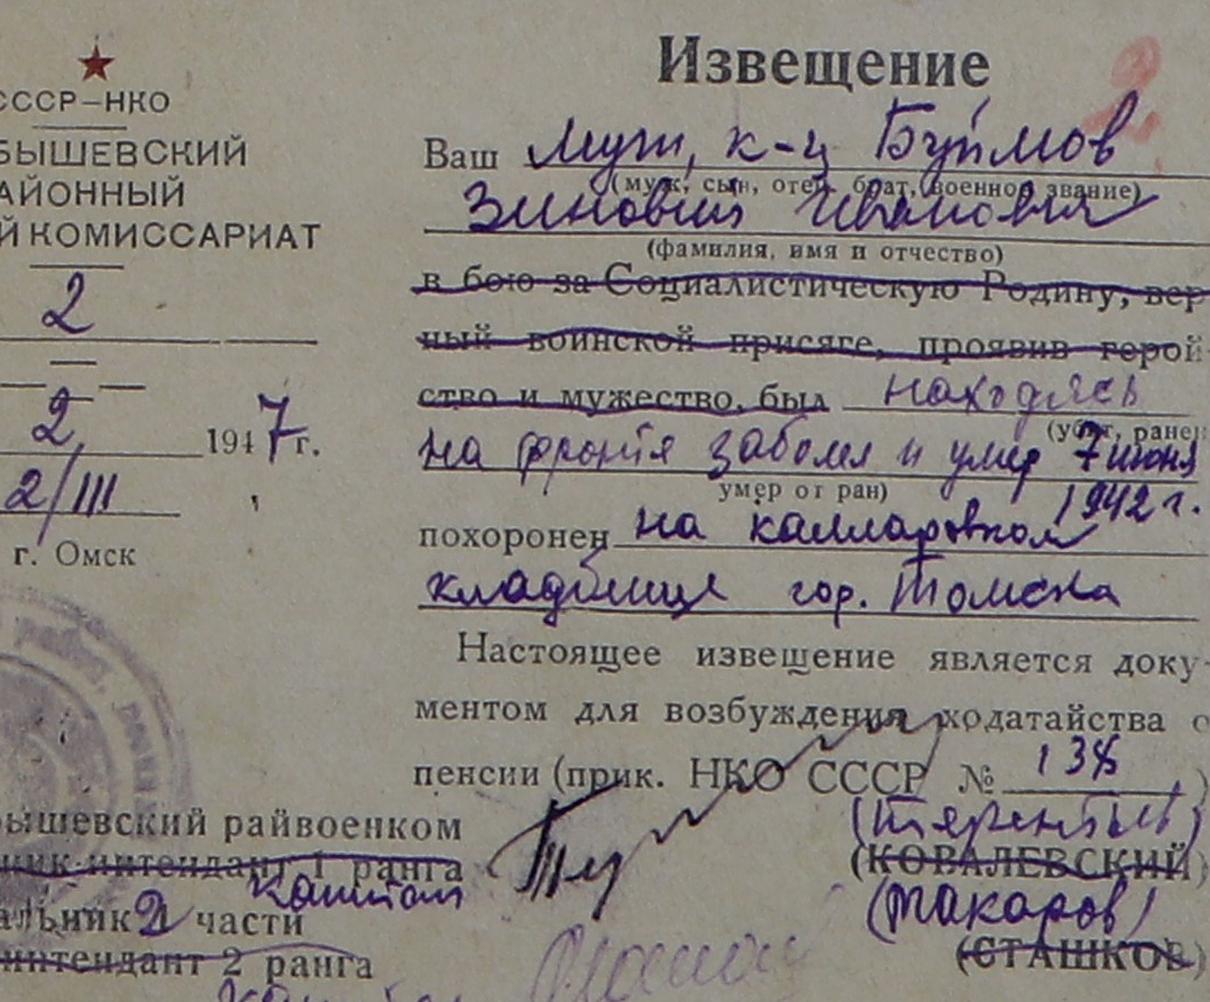 СССР–НКО
БЫШЕВСКИЙ
АЙОННЫЙ
Й КОМИССАРИАТ
2
2 1947 г.
2/III
г. Омск
Извещение
2.
Ваш муж, к-ц Буймов
(муж, сын, отец, брат, военное звание)
Зиновий Иванович
(фамилия, имя и отчество)
в бою за Социалистическую Родину, вер
ный воинской присяге, проявив герой-
ство и мужество, был находясь
(убит, ранен
на фронте заболел и умер 7 июня
умер от ран)
1942 г.
похоронен на
кладбище гор. Томска
Настоящее извещение является доку-
ментом для возбуждения ходатайства о
пенсии (прик. НКО СССР № 138 )
бышевский райвоенком
(Терентьев)
ник интендант 1 ранга
(КОВАЛЕВСКИЙ)
капитан
альник 2 части
(Макаров)
интендант 2 ранга
(СТАШКОВ)